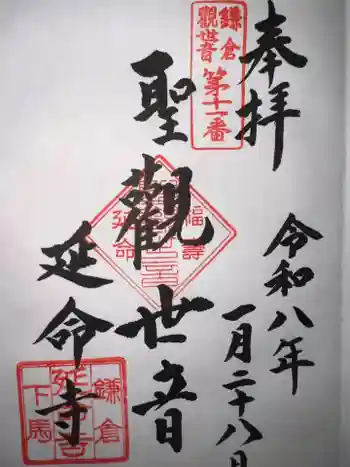 奉拝
鎌倉
觀世音
第十一番
聖觀世音
福壽
延命
令和八年
一月二十八日
延命寺
鎌倉
延命寺
下馬